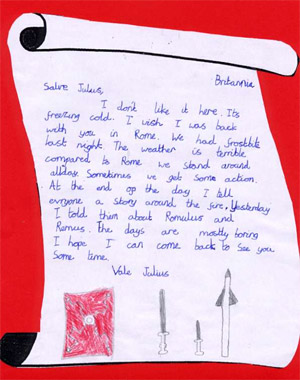 Britannia
Salve Julius,
I don't like it here. Its
freezing cold. I wish I was back
with you in Rome. We had frostbite
last night. The weather is terrible
compared to Rome we stand around
allday. Sometimes we get some action.
At the end op the day I tell
everyone a story around the fire. Yesterday
I told them about Romulus and
Remus. The days are mostly boring
I hope I can come back to see you
Some time.
Vale Julius